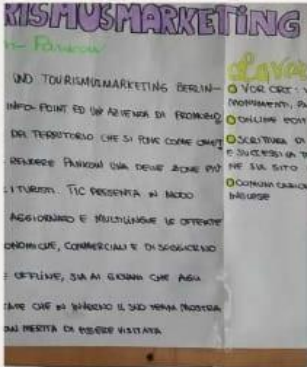 RISMUSMARKETING
Pankow
UND TOURISMUSMARKETING BERLIN-
INFO-POINT ED UN'AZIENDA DI
DEL TERRITORIO CHE SI PONE COME
RENDERE PANKOW UNA DELLE ZONE PIÙ
I TURISTI. TIC PRESENTA IN MODO
AGGIORNATO E MULTILINGUE LE OFFERTE
ONOMICHE, COMMERCIALI E DI SOGGIORNO
OFFLINE, SIA AI CHE AGLI
CHE IN INVERNO IL SUO TEMA MOSTRA
MERITA DI ESSERE VISITATA
VOR ORT: V
MONUMENTI,
ONLINE EDIT
SCRITTURA DI
E SUCCESSIVA
NE SUL SITO
COMUNICAZION
INGLESE